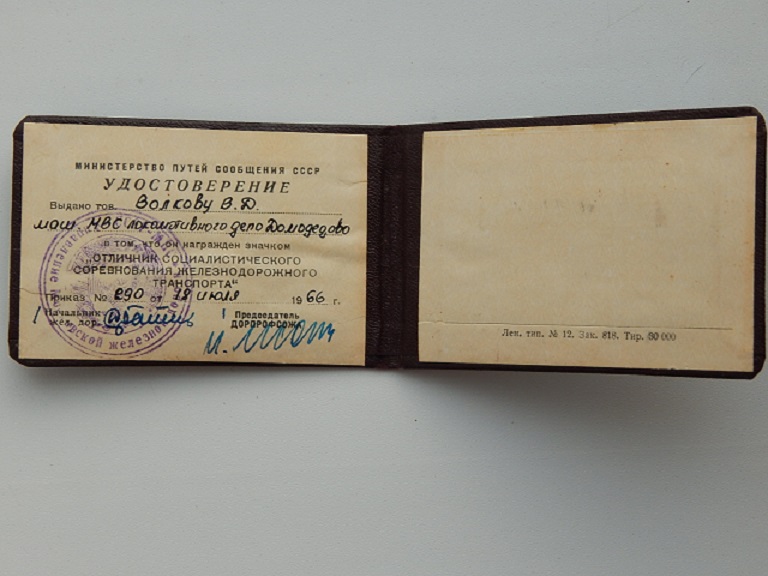 МИНИСТЕРСТВО ПУТЕЙ СООБЩЕНИЯ СССР
УДОСТОВЕРЕНИЕ
Выдано тов. Волкову В.Д.
маш. МВС локомотивного депо Домодедово
в том, что он награжден значком
„ОТЛИЧНИК СОЦИАЛИСТИЧЕСКОГО
СОРЕВНОВАНИЯ ЖЕЛЕЗНОДОРОЖНОГО
ТРАНСПОРТА“
Приказ № 290 от июля 1966 г.
Начальник Председатель
жел. дор. ДОРПРОФСОЖ
ской железно
Лен. тип. № 12. Зак. 818. Тир. 60 000